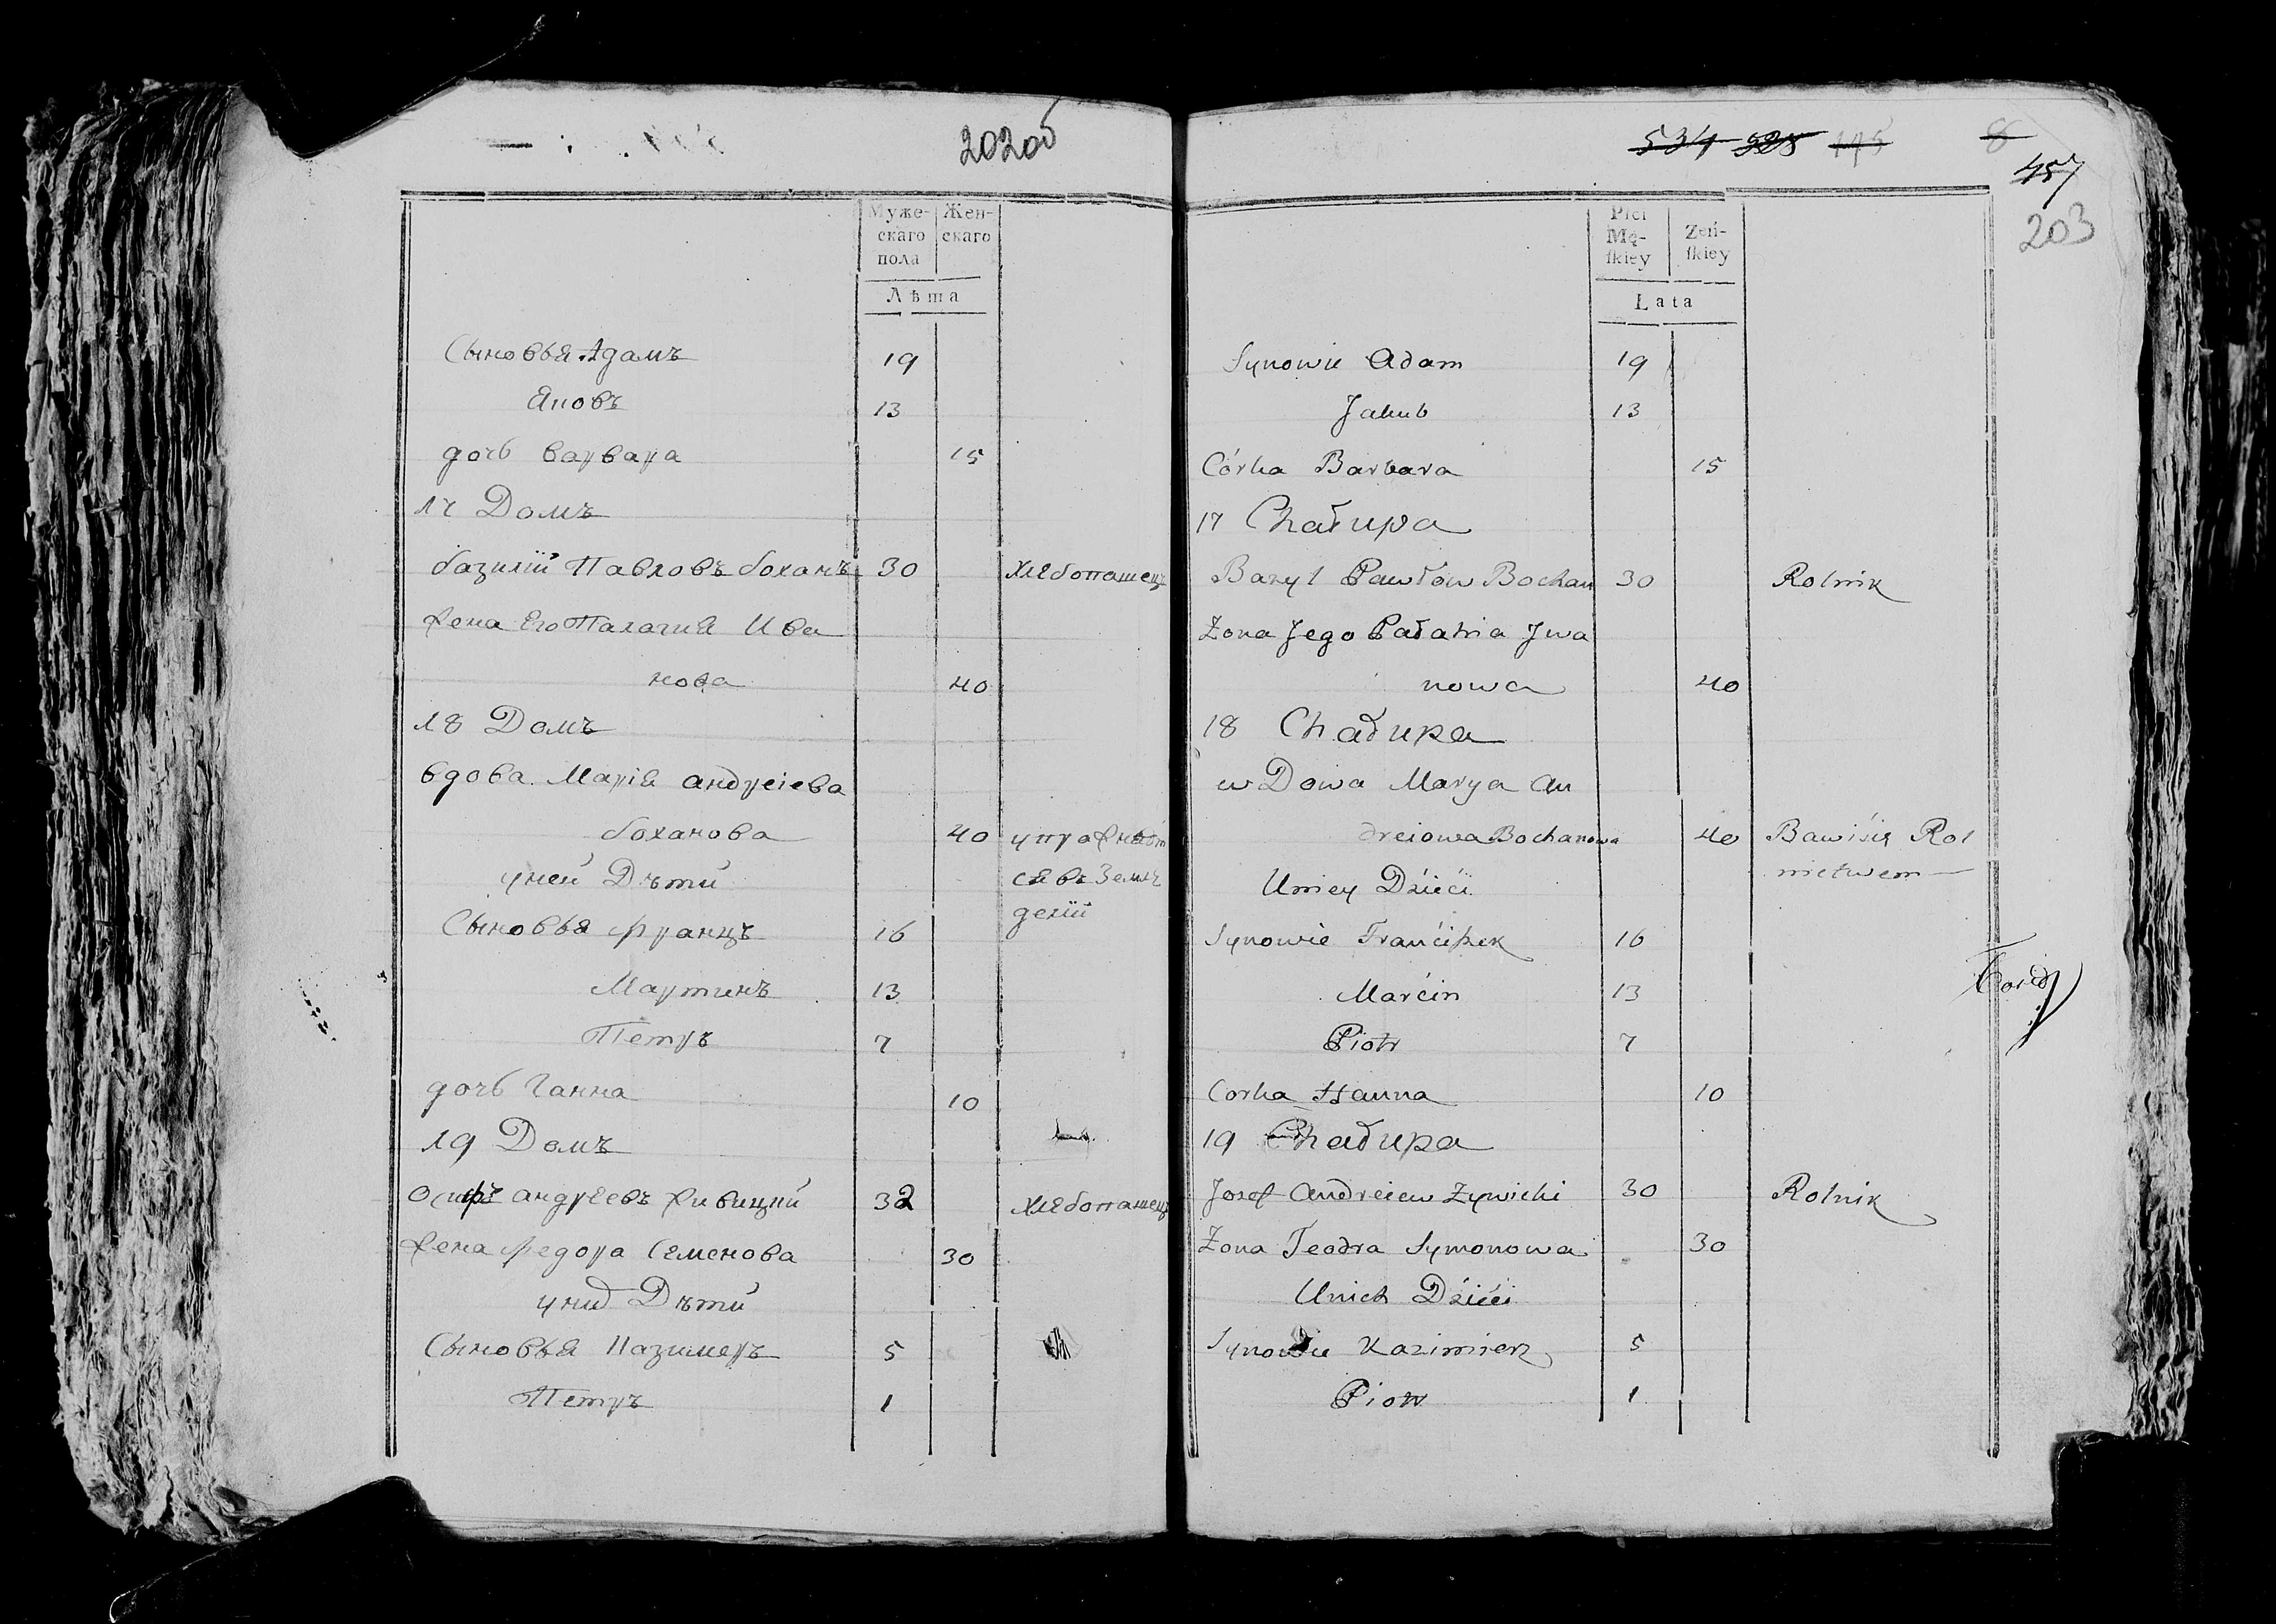 202об
Муже-
скаго
пола
Жен-
скаго
Лѣта
Сыновья Адамъ 19
Яковъ 13
дочь Варвара 15
17 Домъ
базилій Павловъ боханъ 30 хлебопашецъ
жена Его Палагия Ива
нова 40
18 Домъ
вдова Марія андреіева
боханова 40 упражняет
уней Дѣти ся въ Земле
делій
Сыновья францъ 16
Мартинъ 13
Петръ 7
дочь Ганна 10
19 Домъ
Осифъ андреевъ живицкий 32 хлебопашецъ
жена федора Семенова 30
уних Дѣти
Сыновья Казимеръ 5
Петръ 1
534 328 145 8
457
203
Płci
Mę-
ſkiey
Żeń-
ſkiey
Lata
Synowie Adam 19
Jakub 13
Córka Barbara 15
17 Chałupa
Bazyl Pawłow Bochan 30 Rolnik
Zona Jego Pałahia Jwa
nowa 40
18 Chałupa
wDowa Marya An
dreiowa Bochanowa 40 Bawiśię Rol
Uniey Dźieći nictwem
Synowie Franćiſzek 16
Marćin 13
Piotr 7
Corka Hanna 10
19 Chałupa
Jozef Andreiew Zywicki 30 Rolnik
Zona Teodra Symonowa 30
Unich Dźieći
Synowie Kazimierz 5
Piotr 1